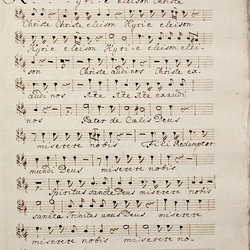 Kyrie eleison Christe
Christe eleison Kyrie eleison
Kyrie eleison Kyrie eleison elei-
son Christe audi nos Christe ex
audi nos exaudi
nos Pater de Cælis Deus
miserere nobis Fili Redemptor
mundi Deus miserere nobis
Spiritus sancte Deus miserere nobis
sancta Trinitas unus Deus miserere
nobis miserere no-